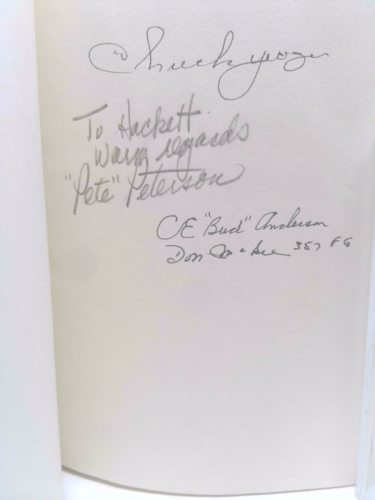 Chuck Yeager
To Hackett
Warm regards
"Pete" Peterson
CE "Bud" Anderson
Don McKee 357 FG